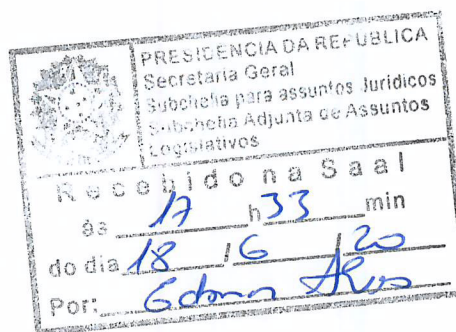 PRESIDENCIA DA REPUBLICA
Secretaria Geral
Subchefia para assuntos Juridicos
Subchefia Adjunta de Assuntos
Legislativos
Recebido na Saal
às 17 h 33 min
do dia 18 / 6 / 20
Por: